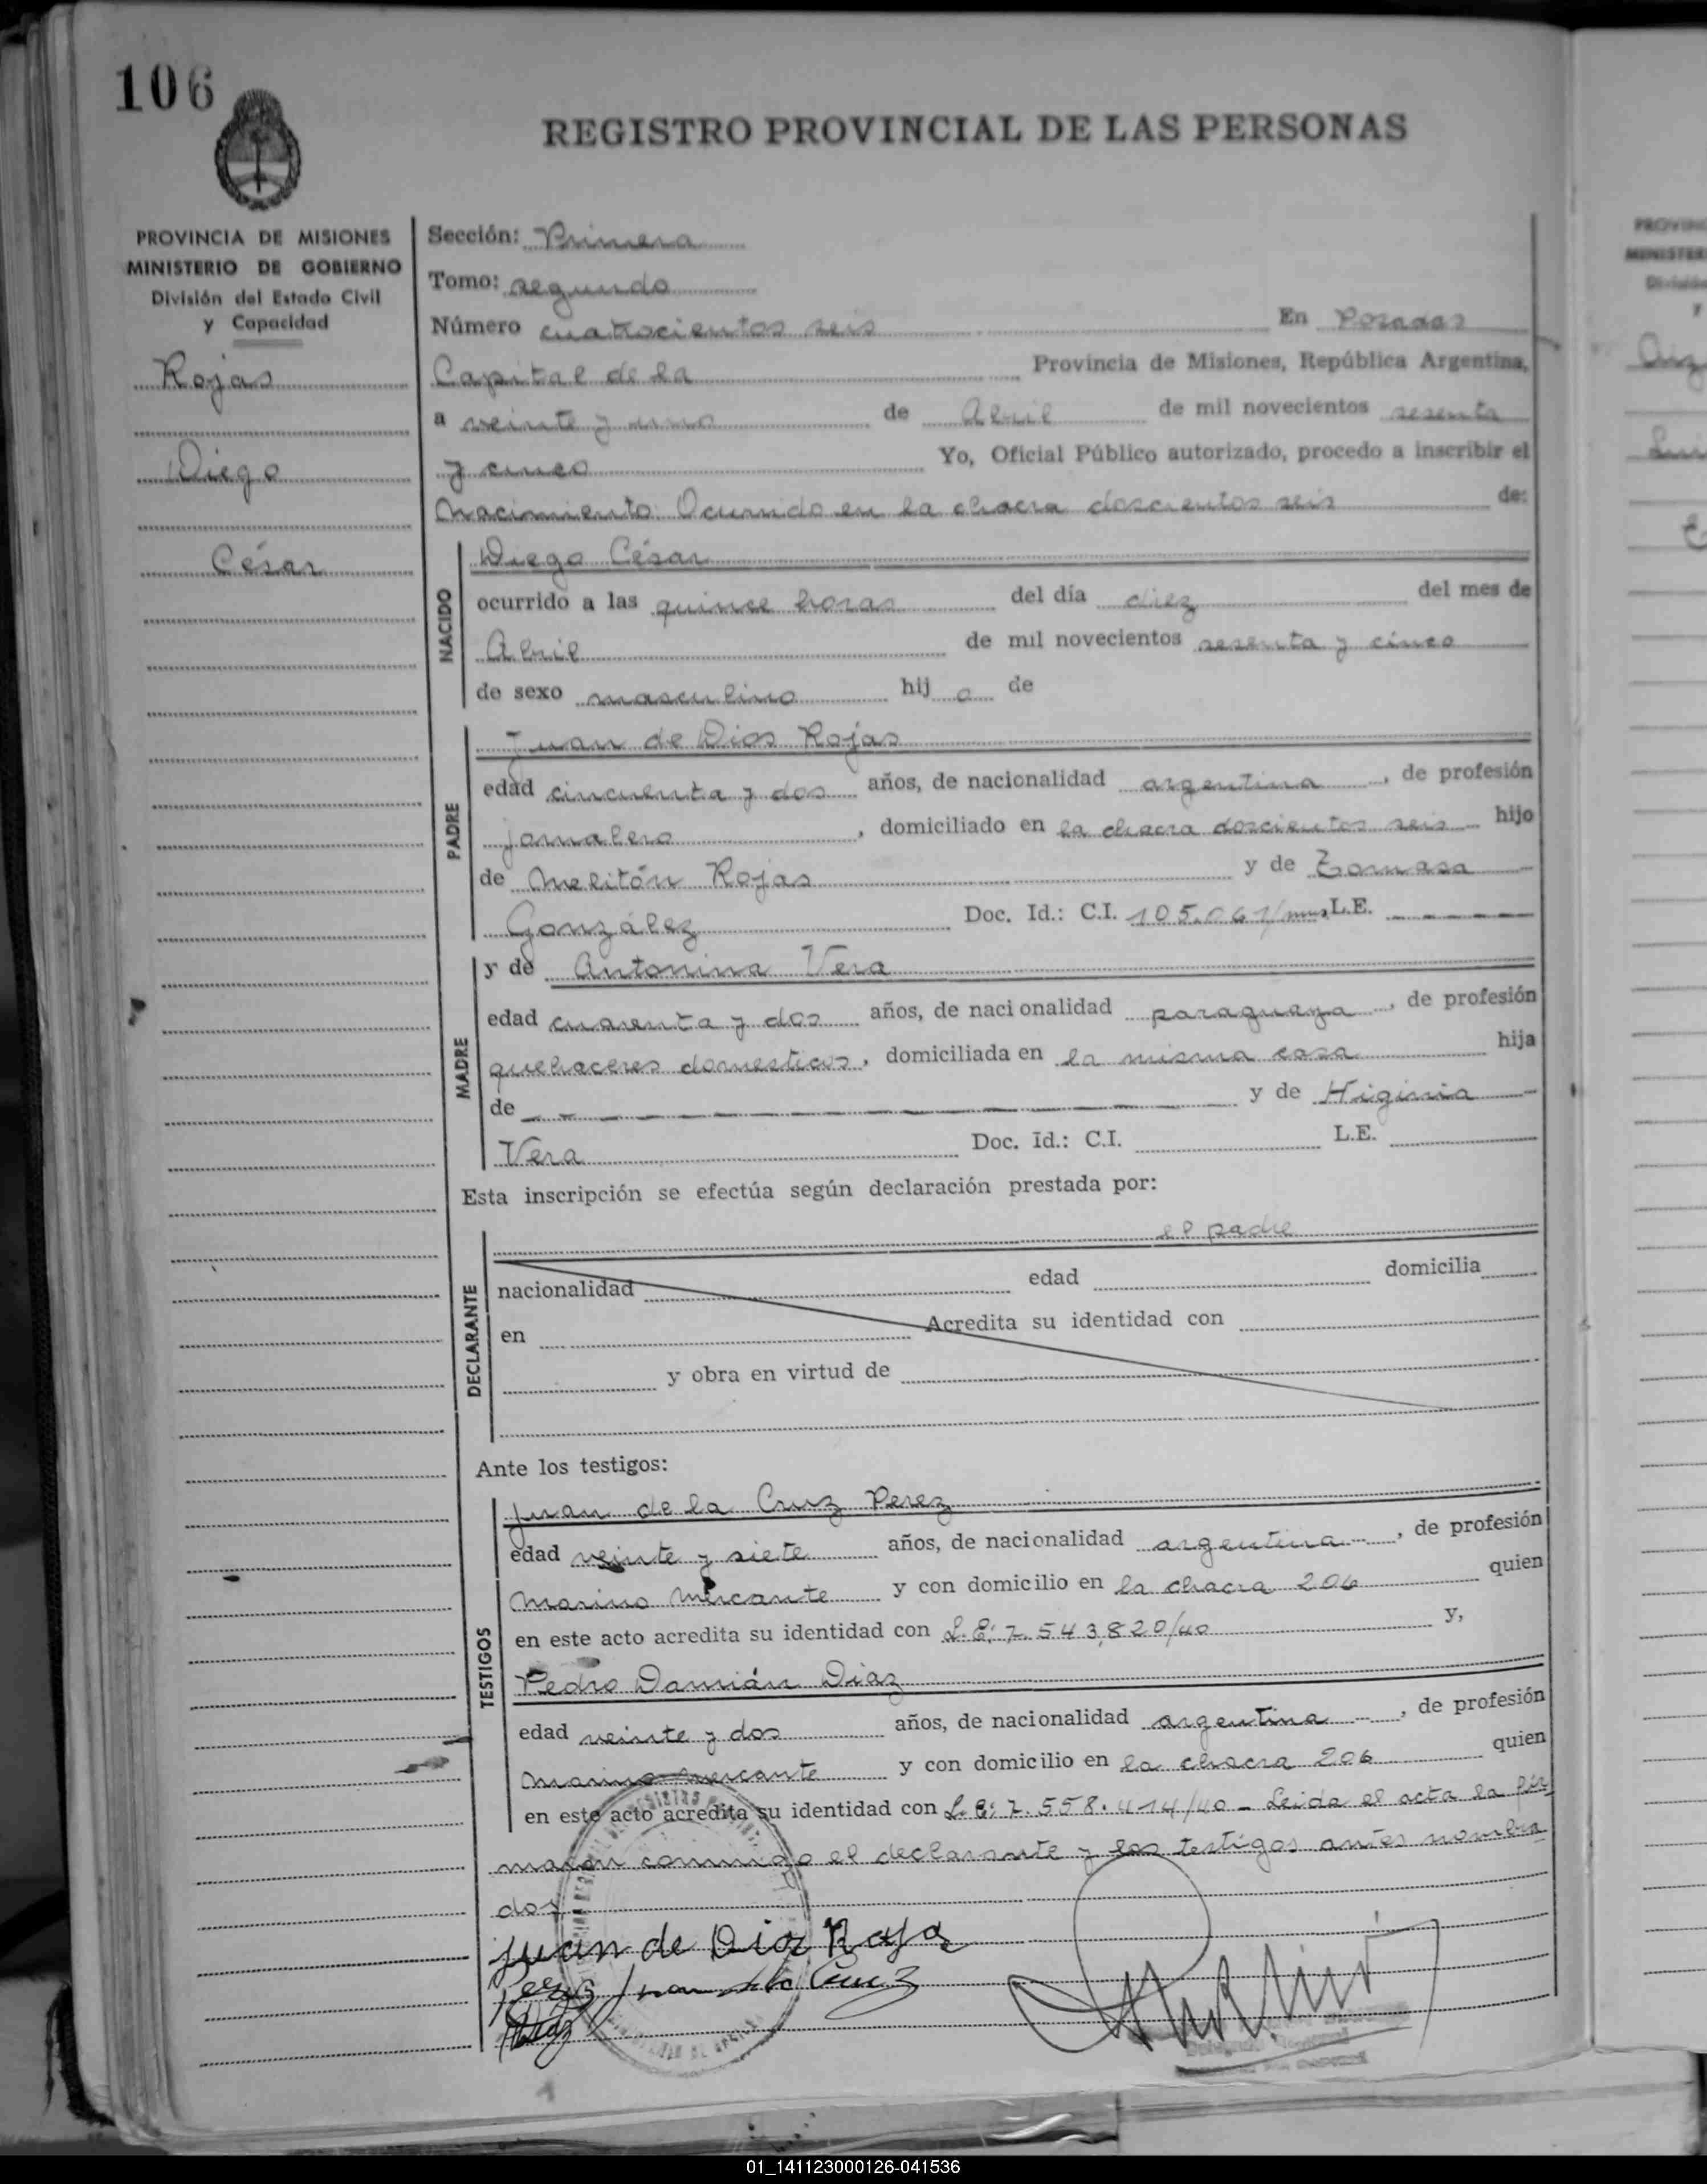 106
REGISTRO PROVINCIAL DE LAS PERSONAS
PROVINCIA DE MISIONES
MINISTERIO DE GOBIERNO
División del Estado Civil
y Capacidad
Rojas
Diego
César
Sección: Primera
Tomo: segundo
Número cuatrocientos seis En Posadas
Capital de la Provincia de Misiones, República Argentina,
a veinte y uno de Abril de mil novecientos sesenta
y cinco Yo, Oficial Público autorizado, procedo a inscribir el
Nacimiento: Ocurrido en la chacra doscientos seis de:
NACIDO
Diego César
ocurrido a las quince horas del día diez del mes de
Abril de mil novecientos sesenta y cinco
de sexo masculino hij o de
PADRE
Juan de Dios Rojas
edad cincuenta y dos años, de nacionalidad argentina, de profesión
jornalero, domiciliado en la chacra doscientos seis hijo
de Melitón Rojas y de Tomasa
González Doc. Id.: C.I. 105.061/mns L.E.
MADRE
y de Antonina Vera
edad cuarenta y dos años, de nacionalidad paraguaya, de profesión
quehaceres domesticos, domiciliada en la misma casa hija
de y de Higinia
Vera Doc. Id.: C.I. L.E.
Esta inscripción se efectúa según declaración prestada por:
DECLARANTE
el padre
nacionalidad edad domicilia
en Acredita su identidad con
y obra en virtud de
Ante los testigos:
TESTIGOS
Juan de la Cruz Perez
edad veinte y siete años, de nacionalidad argentina, de profesión
Marino Mercante y con domicilio en la chacra 206 quien
en este acto acredita su identidad con L.E: 7.543,820/40 y,
Pedro Damián Diaz
edad veinte y dos años, de nacionalidad argentina, de profesión
Marino mercante y con domicilio en la chacra 206 quien
en este acto acredita su identidad con L.E: 7.558.414/40 - Leida el acta la fir
maron conmigo el declarante y los testigos antes nombra
dos
Juan de Dios Roja
Perez Juan de la Cruz
Diaz
01_141123000126-041536